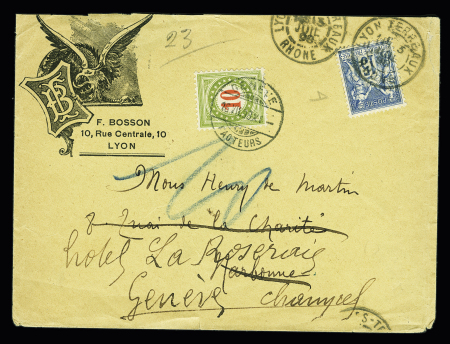 23
LYON TERREAUX
RHONE
15
10
GENÈVE
FACTEURS
FB
F. BOSSON
10, Rue Centrale, 10
LYON
Mons Henry de Martin
8 Quai de la Charité
hotel La Roseraie
Narbonne
Genève Champel